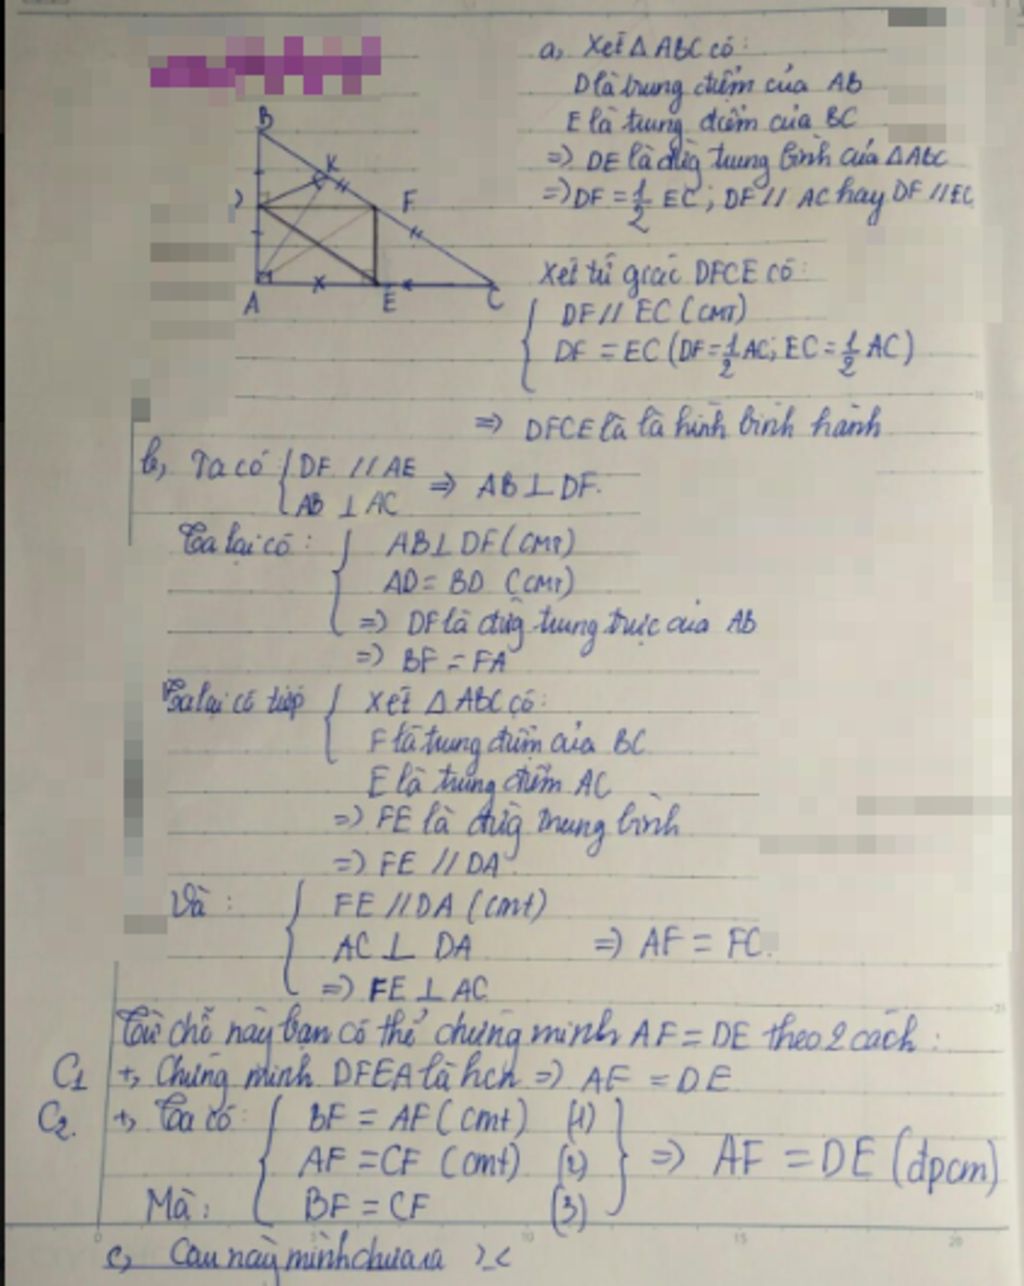 a, Xét △ ABC có:
D là trung điểm của AB
E là trung điểm của BC
=> DE là đg̀ trung bình của △ABC
=> DF = 1/2 EC ; DF // AC hay DF // EC
B
K
F
A
E
C
Xét tứ giác DFCE có:
DF // EC (cmt)
DF = EC (DF = 1/2 AC; EC = 1/2 AC)
=> DFCE là là hình bình hành
b, Ta có { DF // AE
AB ⊥ AC => AB ⊥ DF.
Ta lại có : { AB ⊥ DF (cmt)
AD = BD (cmt)
=> DF là đg̀ trung trực của AB
=> BF = FA
Ta lại có tiếp { Xét △ ABC có:
F là trung điểm của BC
E là trung điểm AC
=> FE là đg̀ trung bình
=> FE // DA
Và : { FE // DA (cmt)
AC ⊥ DA => AF = FC.
=> FE ⊥ AC
Từ chỗ này bạn có thể chứng minh AF = DE theo 2 cách :
C1 +, Chứng minh DFEA là hcn => AF = DE
C2. +, Ta có : { BF = AF (cmt) (1)
AF = CF (cmt) (2) } => AF = DE (đpcm)
Mà : BF = CF (3)
c, Câu này mình chưa ra >_<